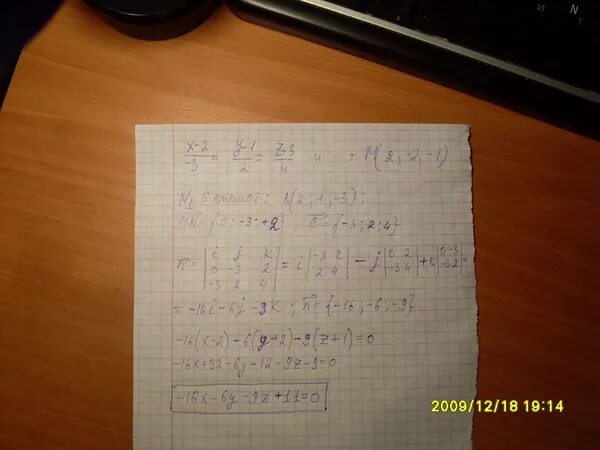 И N
T
x-2/-3 = y-1/2 = z+3/4 и т. M(2,-2,-1)
N₁ ∈ прямой: N(2; 1; -3):
MN = {0; -3; +2} ℓ = {-3; 2; 4}
n = |i j k; 0 -3 2; -3 2 4| = i |-3 2; 2 4| - j |0 2; -3 4| + k |0 -3; -3 2| =
= -16i - 6j - 9k ; n = {-16; -6; -9}
-16(x-2) - 6(y+2) - 9(z+1) = 0
-16x+32-6y-12-9z-9=0
-16x-6y-9z+11=0
2009/12/18 19:14